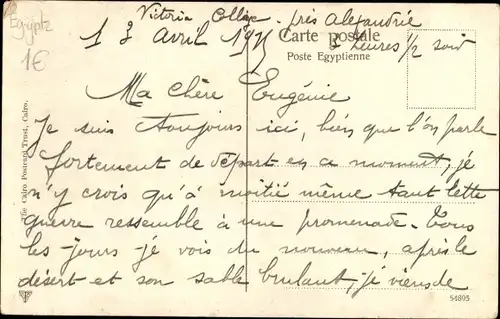 Victoria College - près Alexandrie
13 avril 1915
3 heures 1/2 soir
Egypte
1€
Carte postale
Poste Egyptienne
Ma chère Eugénie
Je suis toujours ici, bien que l'on parle
fortement de départ en ce moment, je
n'y crois qu'à moitié même tant cette
guerre ressemble à une promenade. Tous
les jours je vois du nouveau, après le
désert et son sable brulant, je viens de
The Cairo Postcard Trust, Cairo.
54895